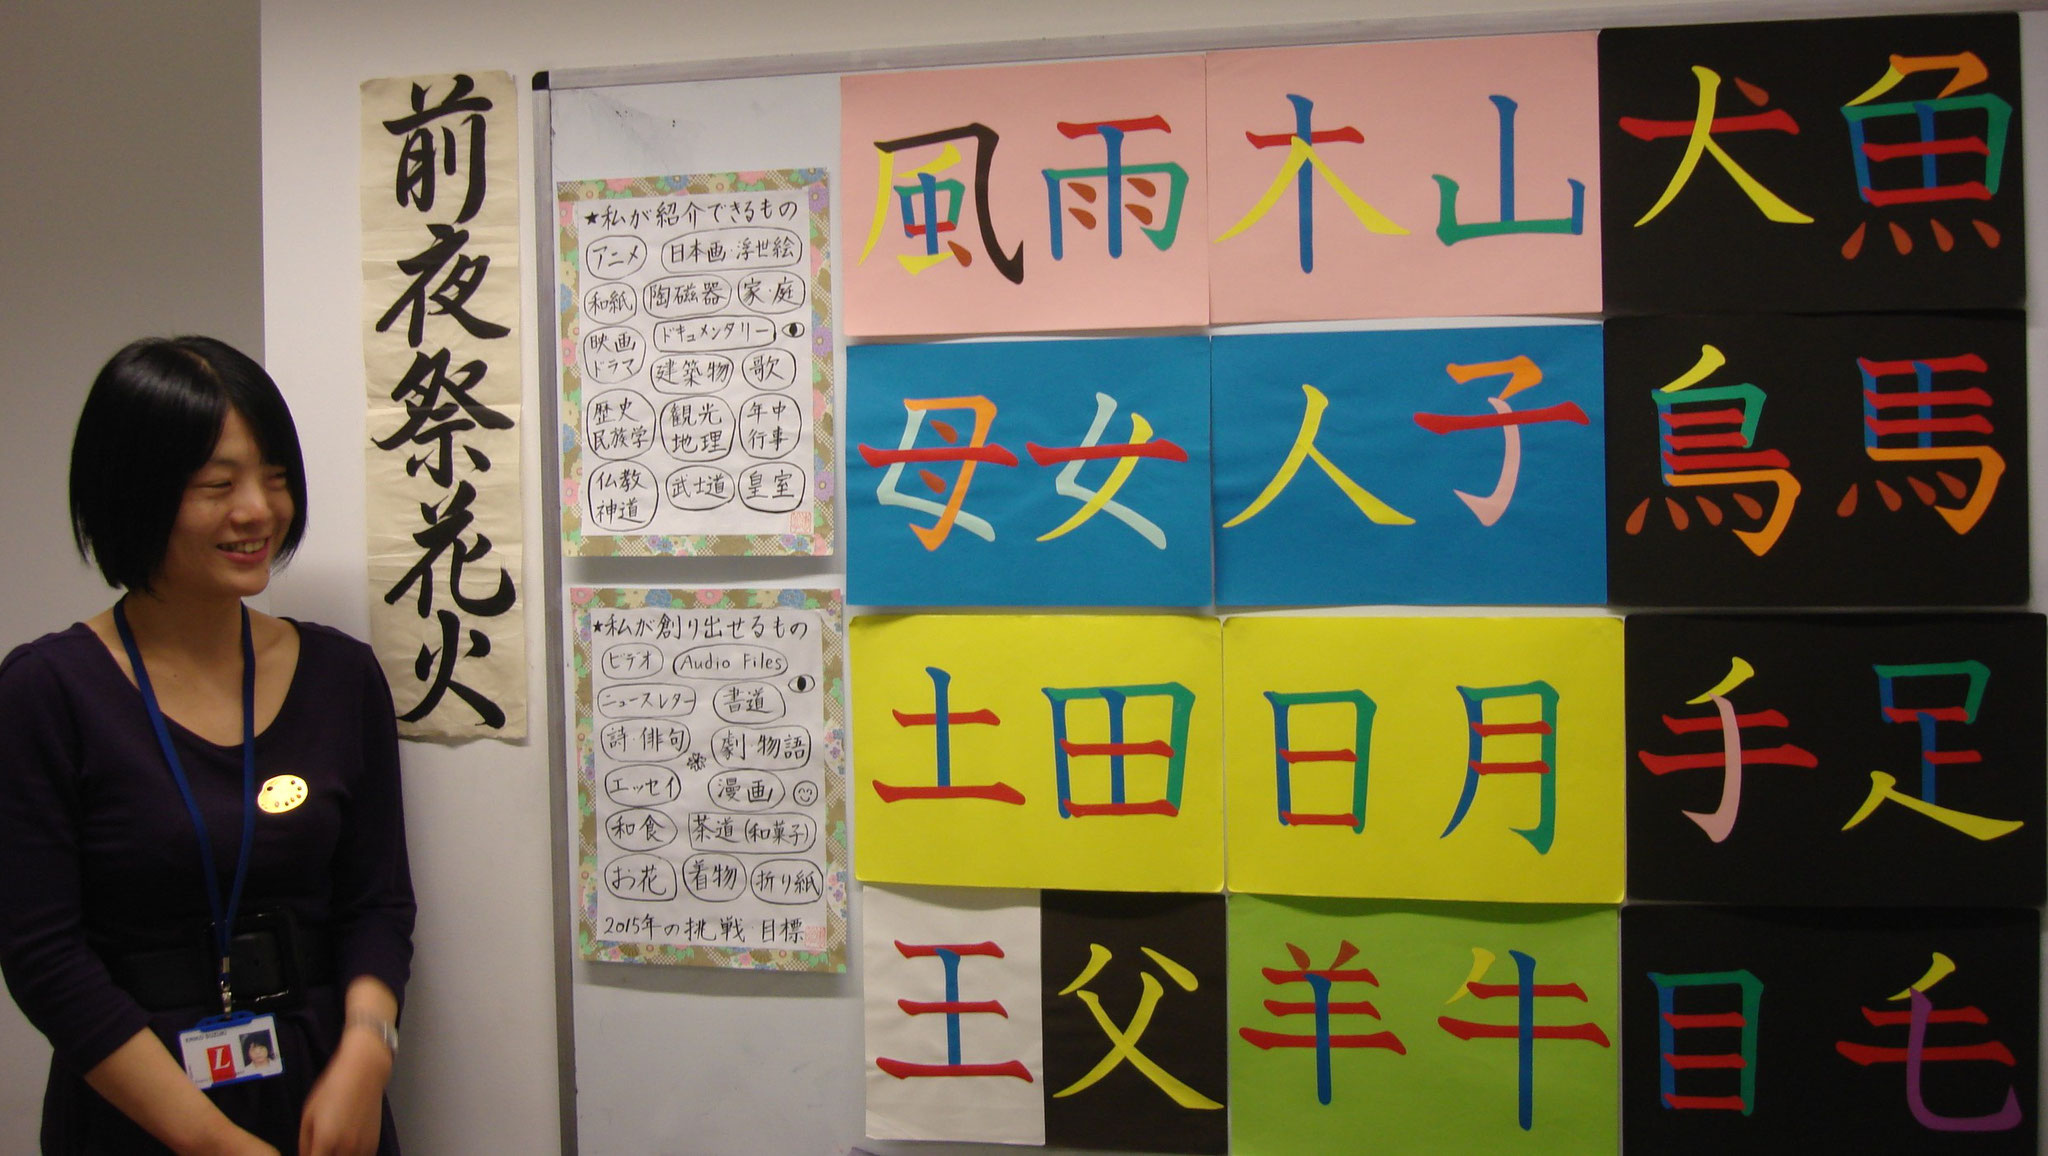 前夜祭花火
★私が紹介できるもの
アニメ 日本画・浮世絵
和紙 陶磁器 家・庭
映画ドラマ ドキュメンタリー
建築物 歌
歴史民族学 観光地理 年中行事
仏教神道 武士道 皇室
★私が創り出せるもの
ビデオ Audio Files
ニュースレター 書道
詩・俳句 劇・物語
エッセイ 漫画
和食 茶道(和菓子)
お花 着物 折り紙
2015年の挑戦・目標
風 雨 木 山 犬 魚
母 女 人 子 鳥 馬
土 田 日 月 手 足
王 父 羊 牛 目 毛
L